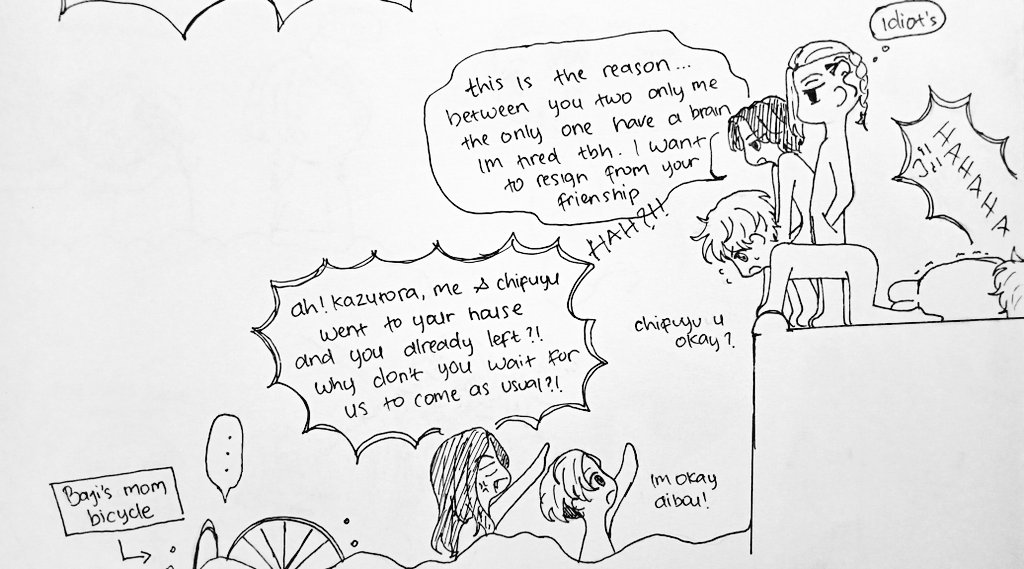 Idiot's
this is the reason...
between you two only me
the only one have a brain
Im tired tbh. I want
to resign from your
frienship
HAHAHAHA
HAH?!!
ah! Kazutora, me & chifuyu
went to your house
and you already left?!
why don't you wait for
us to come as usual?!
chifuyu u
okay?
Im okay
aibou!
....
Baji's mom
bicycle